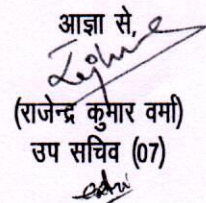 आज्ञा से,
(राजेन्द्र कुमार वर्मा)
उप सचिव (07)